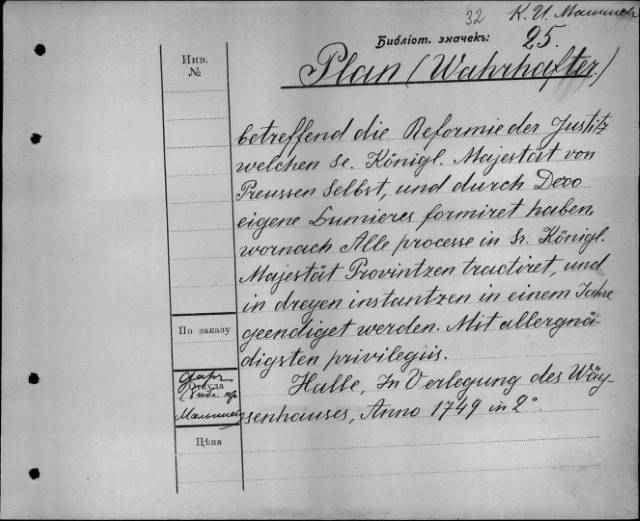 32 К. И. Малышев
Библіот. значекъ: 25.
Plan (Wahrhafter.)
Инв.
№
betreffend die Reformie der Justitz
welchen Se. Königl. Majestät von
Preussen Selbst, und durch Dero
eigene Lumieres formiret haben,
wornach Alle processe in Sr. Königl.
Majestät Provintzen tractiret, und
in dreyen instantzen in einem Jahre
По заказу
geendiget werden. Mit allergnä-
digsten privilegiis.
Откуда
Halle, In Verlegung des Wäy-
Малышев
senhauses, Anno 1749 in 2°.
Цѣна